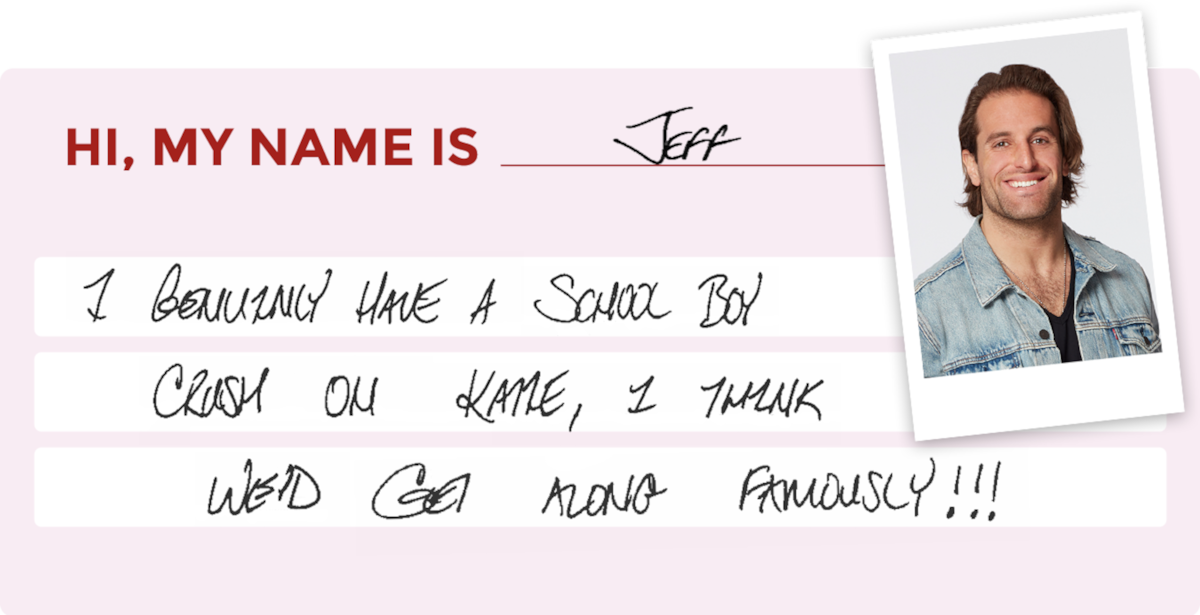 HI, MY NAME IS JEFF
I GENUINLY HAVE A SCHOOL BOY
CRUSH ON KATIE, I THINK
WE'D GET ALONG FAMOUSLY!!!